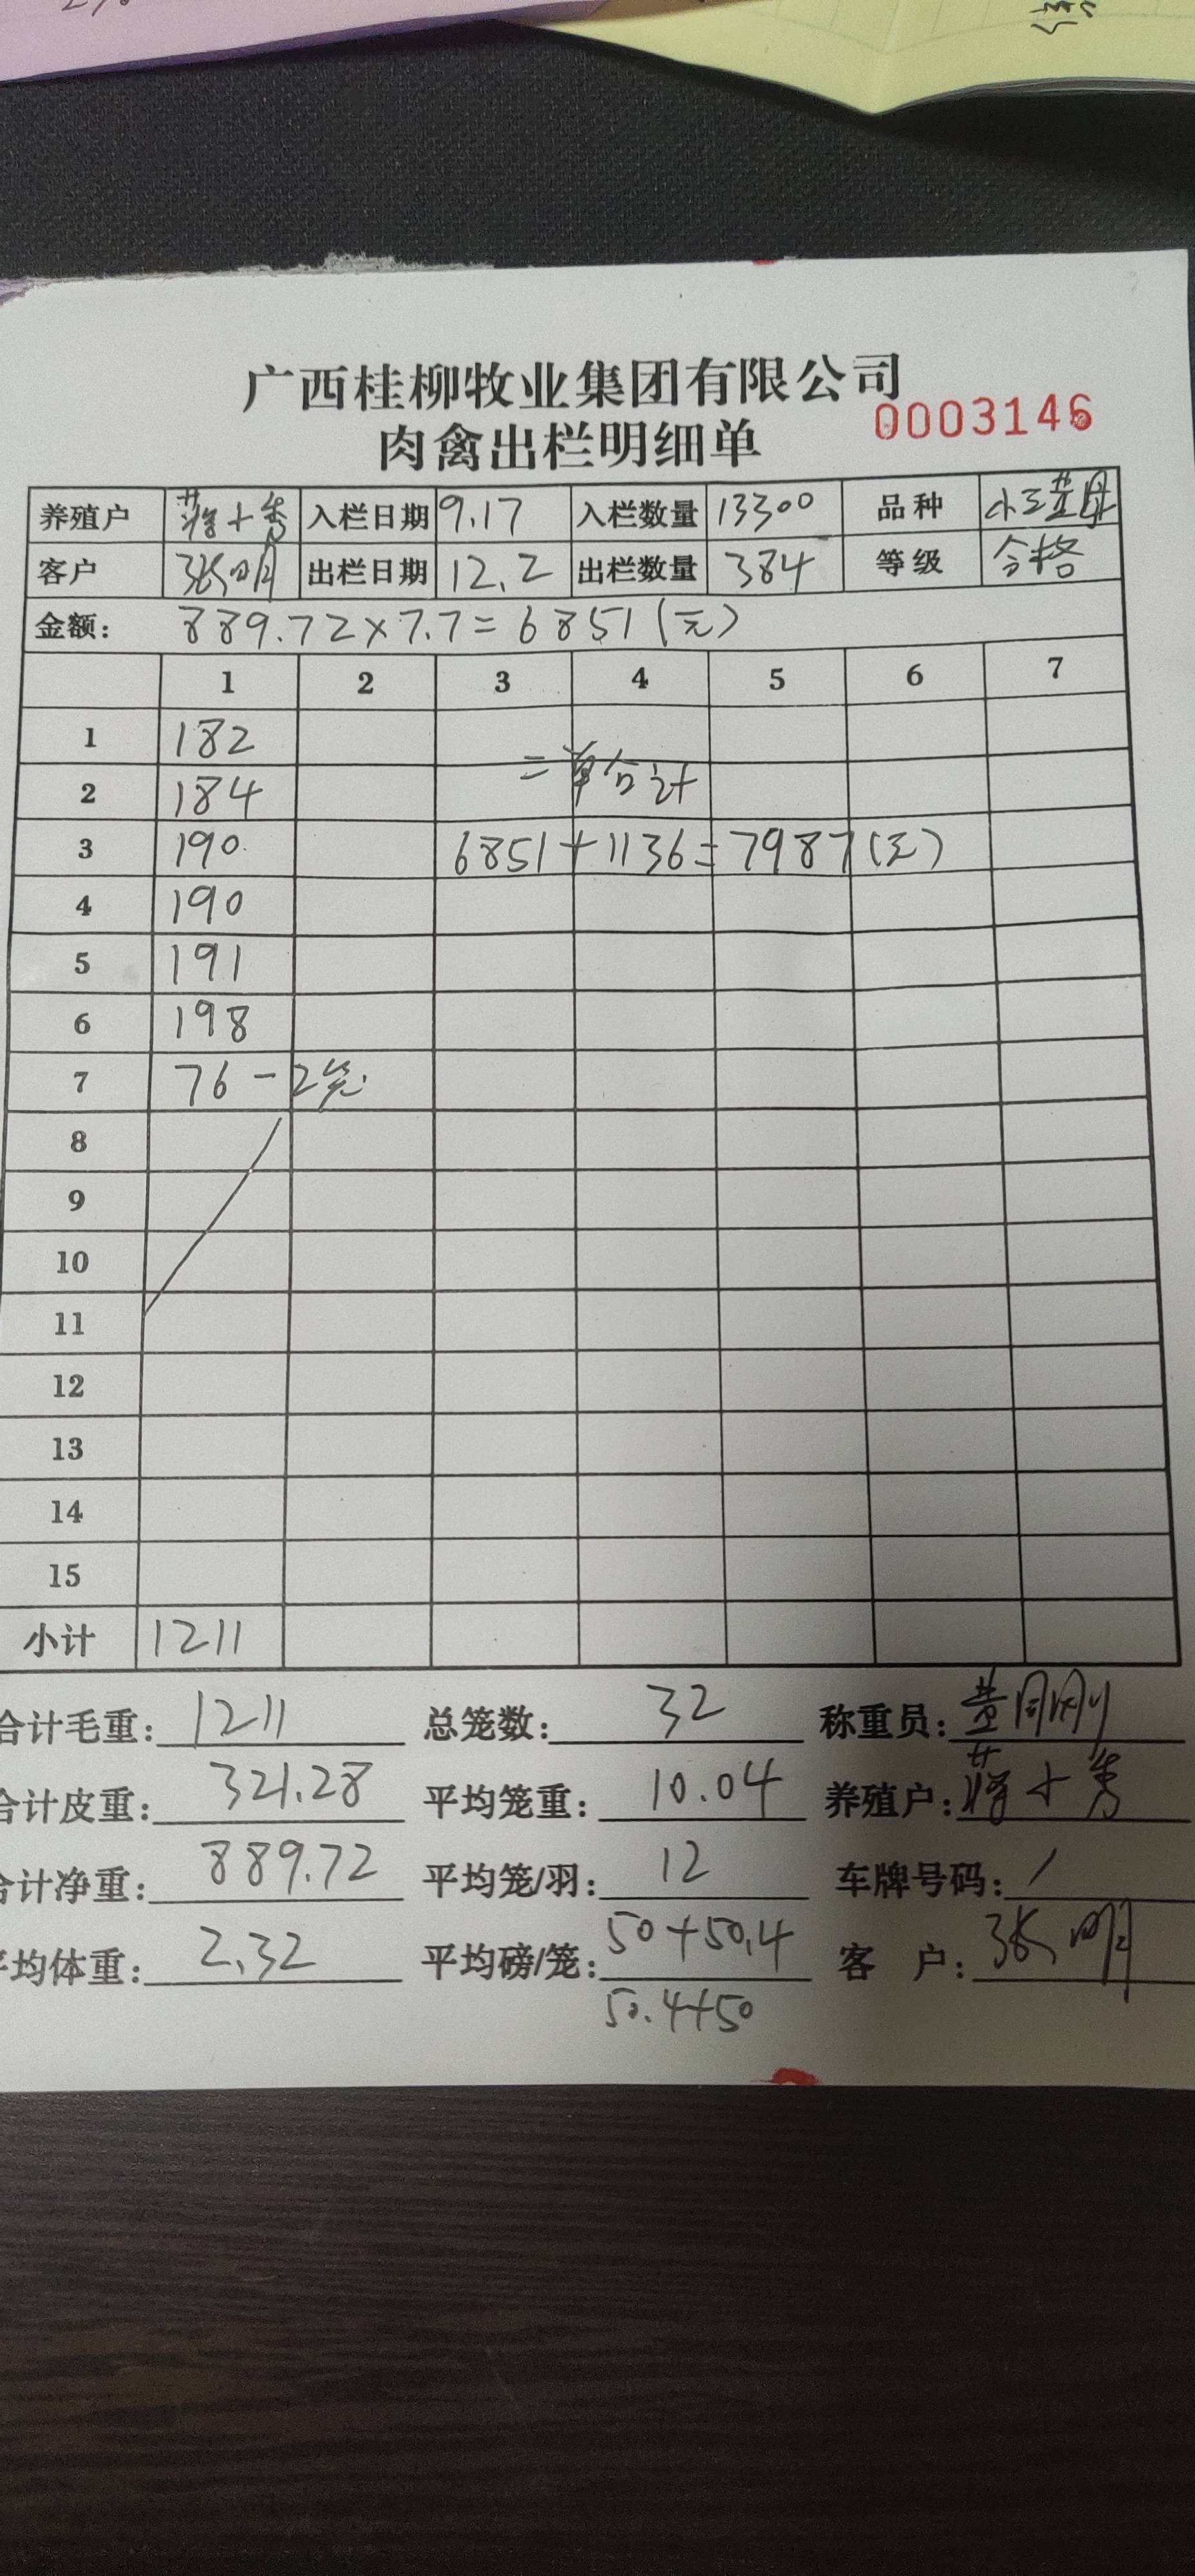 广西桂柳牧业集团有限公司
0003146
肉禽出栏明细单
养殖户 蒋小秀 入栏日期 9.17 入栏数量 13300 品种 小三黄母
客户 张明 出栏日期 12.2 出栏数量 384 等级 合格
金额: 889.72×7.7=6851(元)
1 2 3 4 5 6 7
1 182
=单合计
2 184
3 190 6851+1136=7987(元)
4 190
5 191
6 198
7 76-2笼
8
9
10
11
12
13
14
15
小计 1211
合计毛重: 1211 总笼数: 32 称重员: 黄刚
合计皮重: 321.28 平均笼重: 10.04 养殖户: 蒋小秀
合计净重: 889.72 平均笼/羽: 12 车牌号码: /
平均体重: 2.32 平均磅/笼: 50+50.4 客 户: 张明
50.4+50